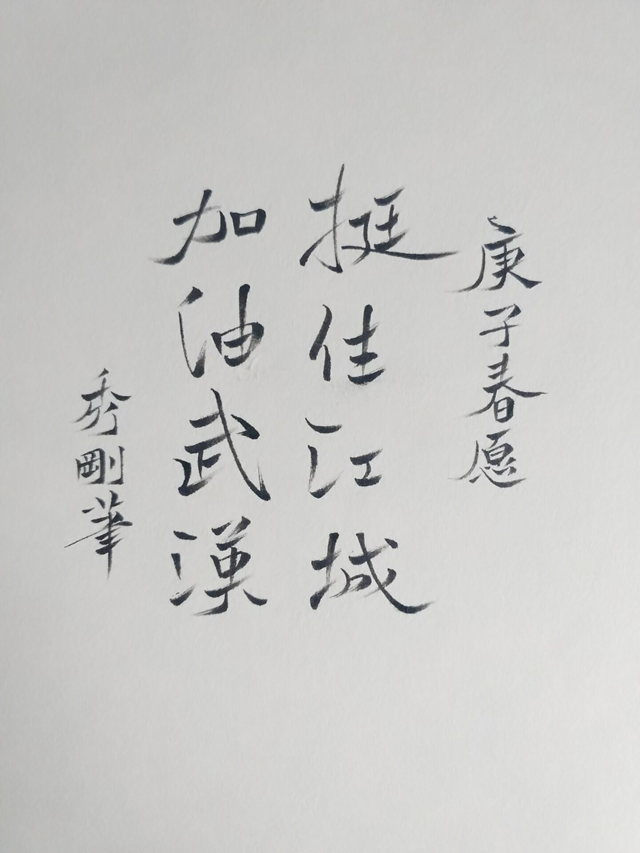 庚子春愿
挺住江城
加油武漢
秀剛筆